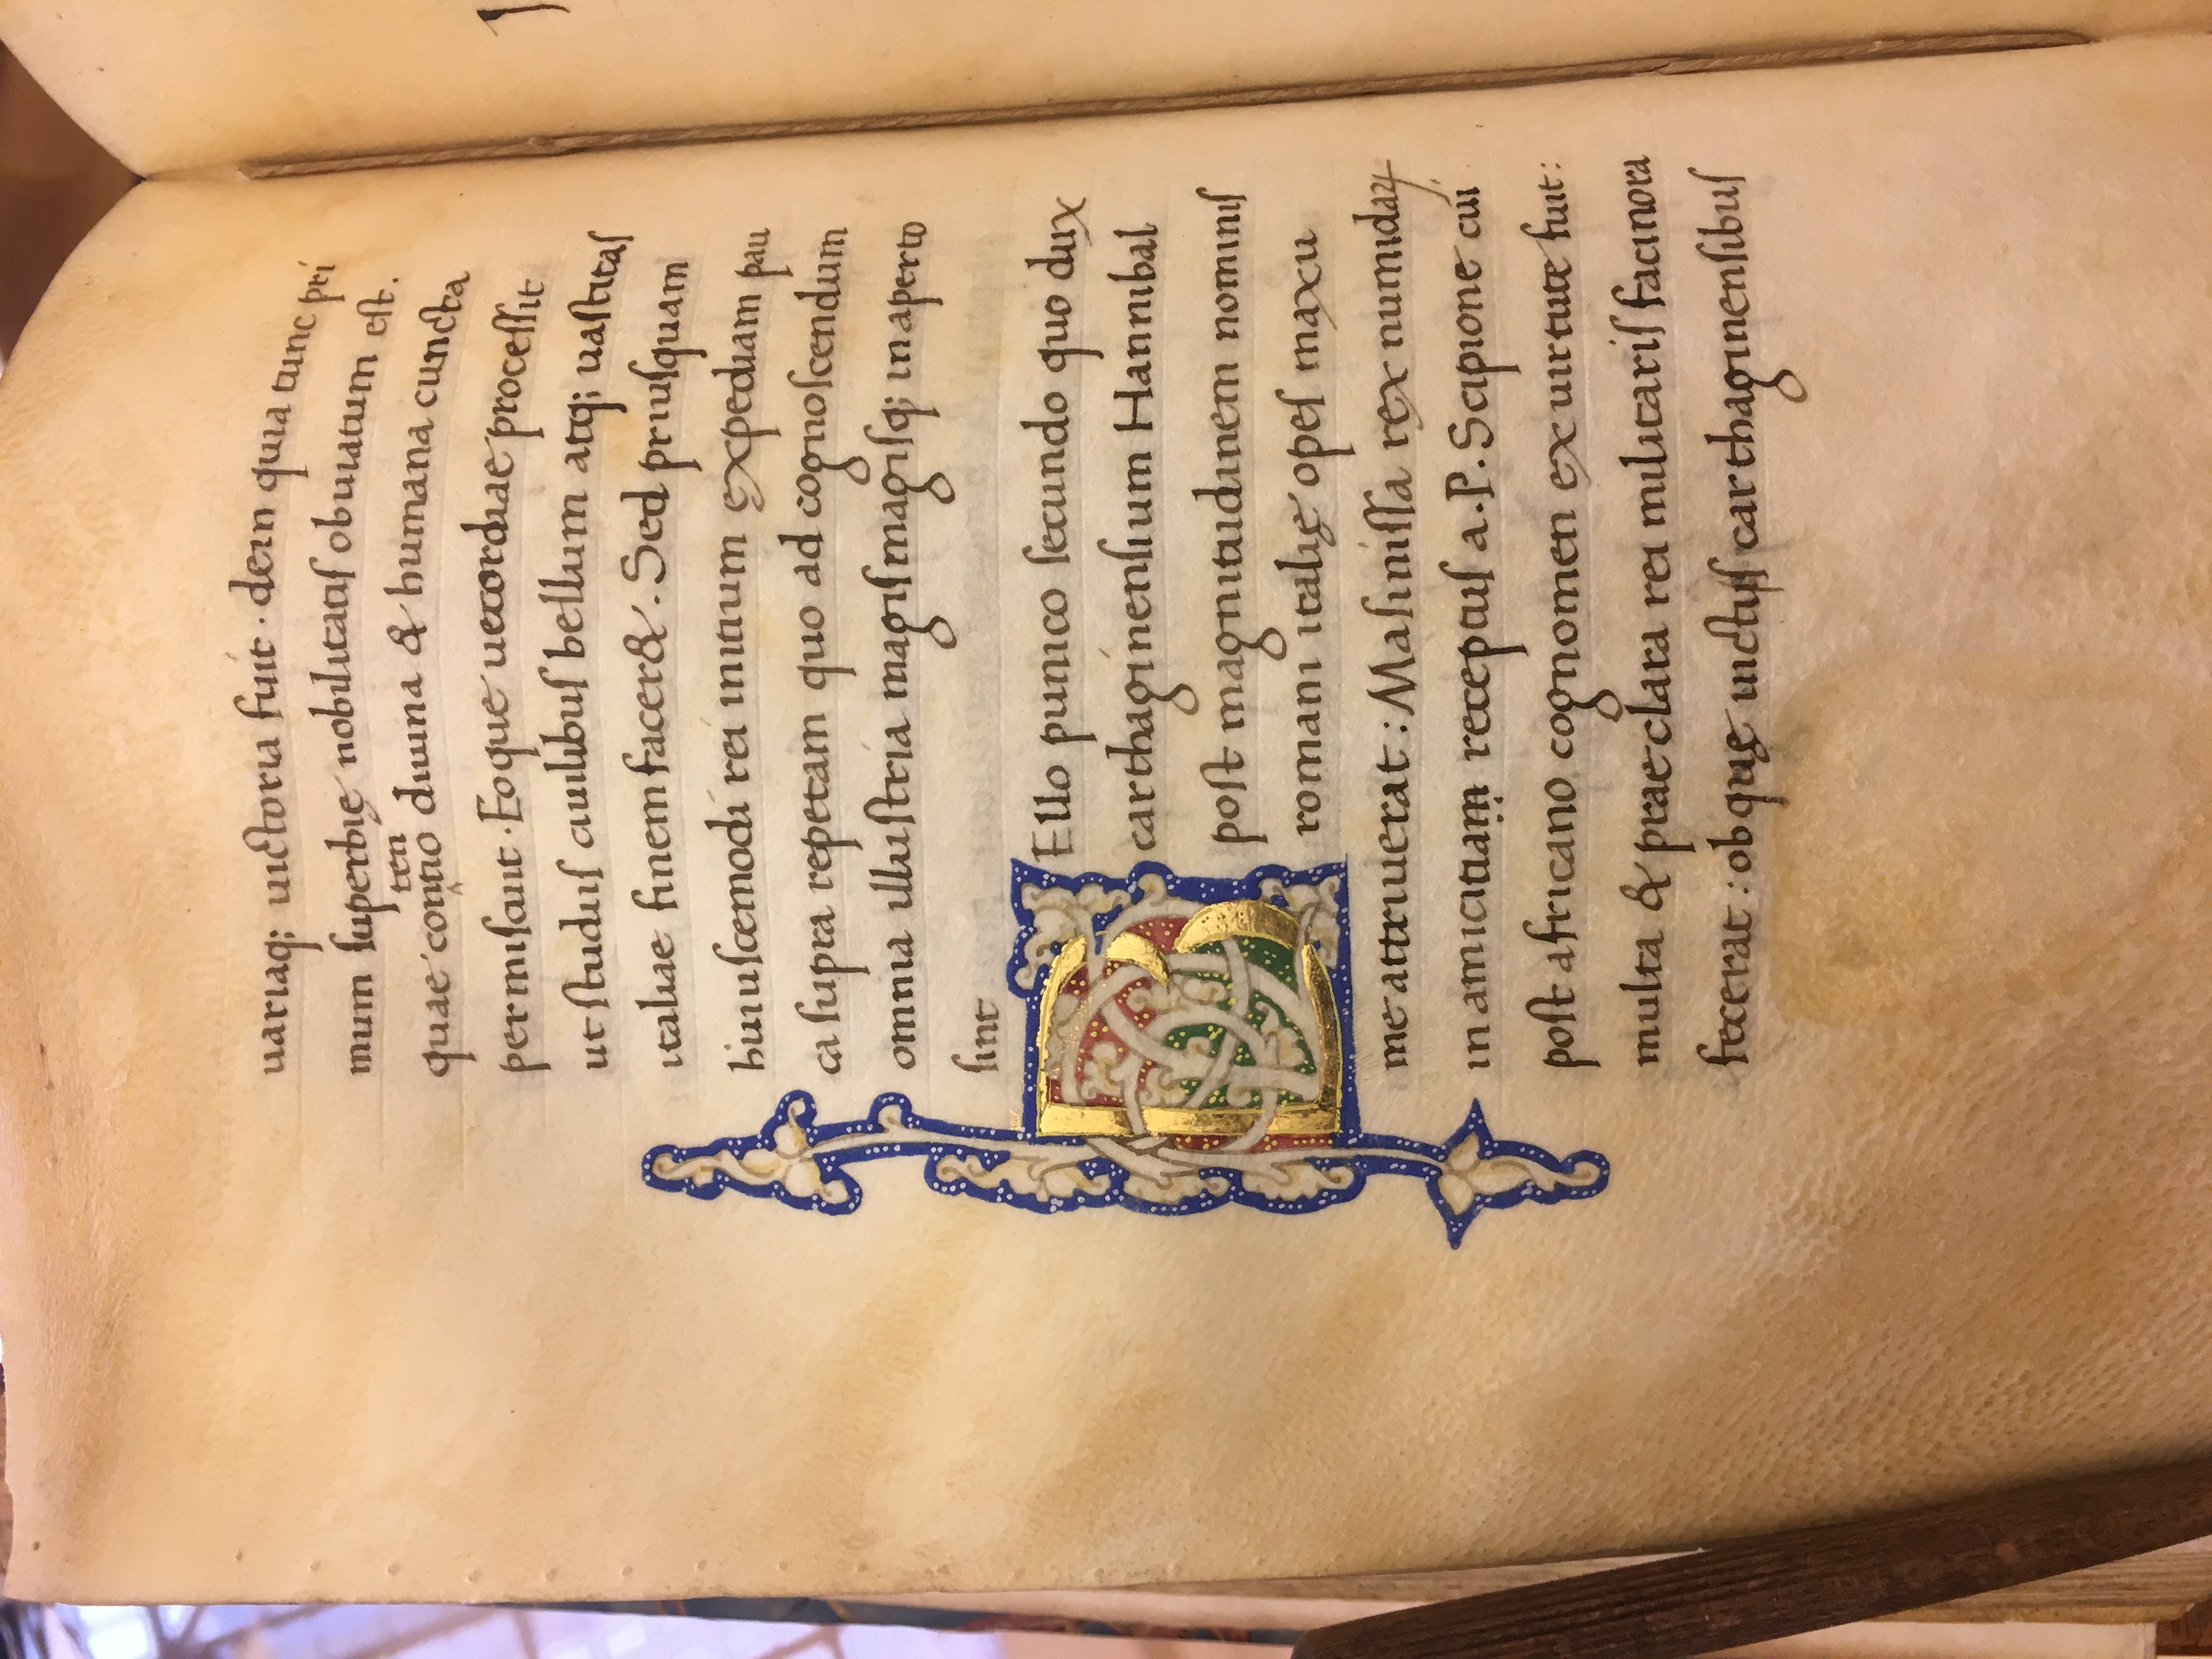 uariaq; uictoria fuit. dein quia tunc pri
mum superbię nobilitatis obuiatum est.
ten
quae contio diuina & humana cuncta
permiscuit. Eoque uecordiae processit
ut studiis ciuilibus bellum atq; uastitas
italiae finem facer&. Sed priusquam
huiuscemodi rei initium expediam pau
ca supra repetam quo ad cognoscendum
omnia illustria magis magisq; in aperto
sint
BEllo punico secundo quo dux
carthaginensium Hannibal
post magnitudinem nominis
romani italię opes maxu
me attriuerat: Masinissa rex numidaꝝ
in amicitiam receptus a.P. Scipione cui
post africano cognomen ex uirtute fuit:
multa & praeclara rei militaris facinora
fecerat: ob quę uictis carthaginensibus